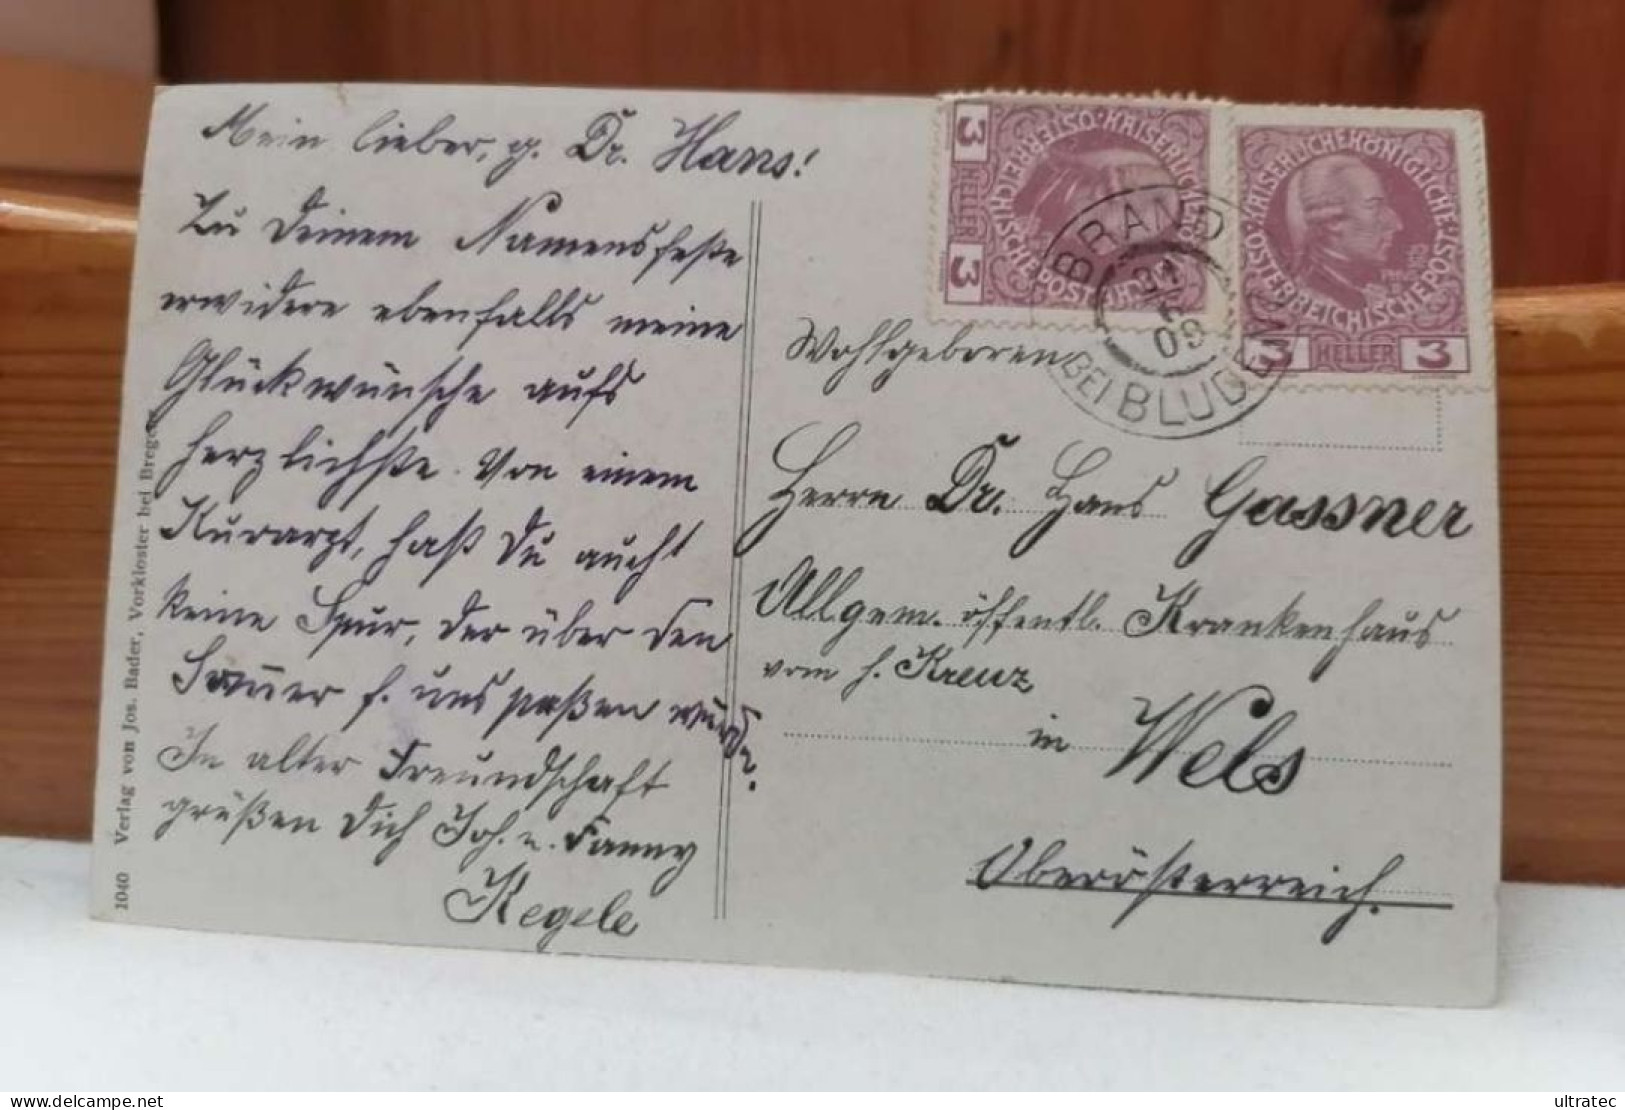 Mein lieber, g. Dr. Hans!
Zu Deinem Namensfeste
erwidere ebenfalls meine
Glückwünsche aufs
herzlichste. Von einem
Kurarzt, hast Du auch
keine Spur, der über den
f. uns paßen würde.
In alter Freundschaft
grüßen Dich Joh. u. Fanny
Kegele
1040 Verlag von Jos. Bader, Vorkloster bei Bregenz
3 HELLER 3
KAISERLICHE KÖNIGLICHE
ÖSTERREICHISCHE POST
3 HELLER 3
KAISERLICHE KÖNIGLICHE
ÖSTERREICHISCHE POST
BRAND
09
BEI BLUDENZ
Wohlgeboren
Herrn Dr. Hans Gassner
Allgem. öffentl. Krankenhaus
vom h. Kreuz
in Wels
Oberösterreich.
ultratec
delcampe.net